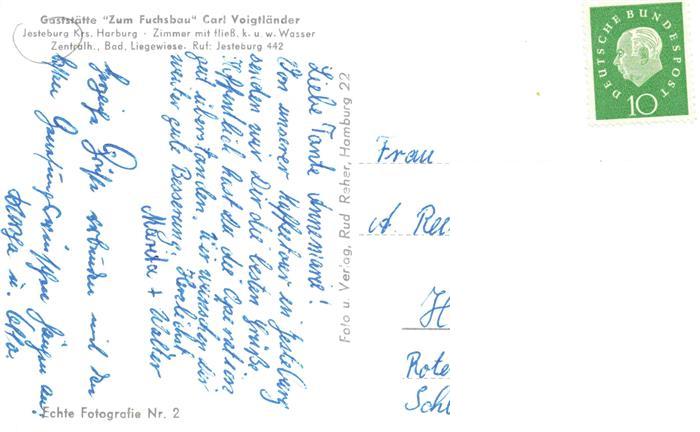 Gaststätte "Zum Fuchsbau" Carl Voigtländer
Jesteburg Krs. Harburg · Zimmer mit fließ. k. u. w. Wasser
Zentralh., Bad, Liegewiese. Ruf: Jesteburg 442
Liebe Tante Annemarie!
Von unserer Kaffeetour in Jesteburg
senden wir Dir die besten Grüße.
Hoffentlich hast du die Operation
gut überstanden. Wir wünschen dir
weiter gute Besserung. Herzlichst
Marita + Walter
Grüße verbunden mit den
Foto u. Verlag, Rud Reher, Hamburg 22
Echte Fotografie Nr. 2
DEUTSCHE BUNDESPOST
10
Frau
A. Ree
H
Rote
Schl